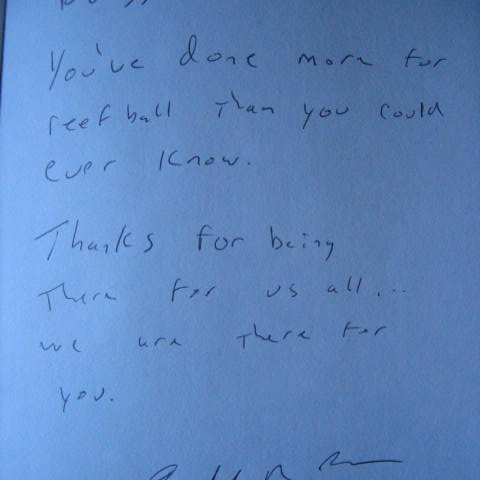 You've done more for
reef ball than you could
ever know.
Thanks for being
There for us all...
we are there for
you.